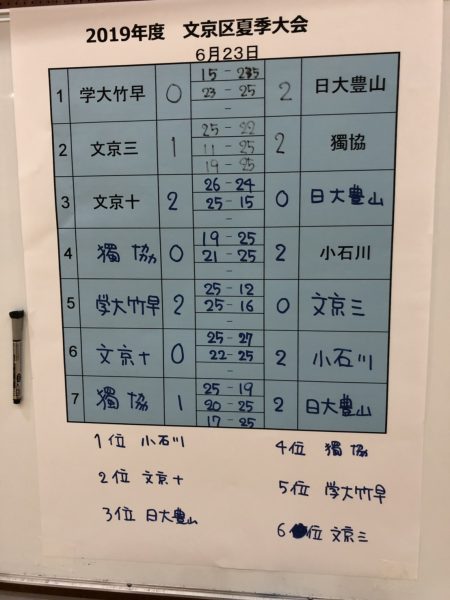 2019年度 文京区夏季大会
6月23日
1 学大竹早 0 15 - 25 2 日大豊山
23 - 25
-
2 文京三 1 25 - 22 2 獨協
11 - 25
19 - 25
3 文京十 2 26 - 24 0 日大豊山
25 - 15
-
4 獨協 0 19 - 25 2 小石川
21 - 25
-
5 学大竹早 2 25 - 12 0 文京三
25 - 16
-
6 文京十 0 25 - 27 2 小石川
22 - 25
-
7 獨協 1 25 - 19 2 日大豊山
20 - 25
17 - 25
1位 小石川
2位 文京十
3位 日大豊山
4位 獨協
5位 学大竹早
6位 文京三